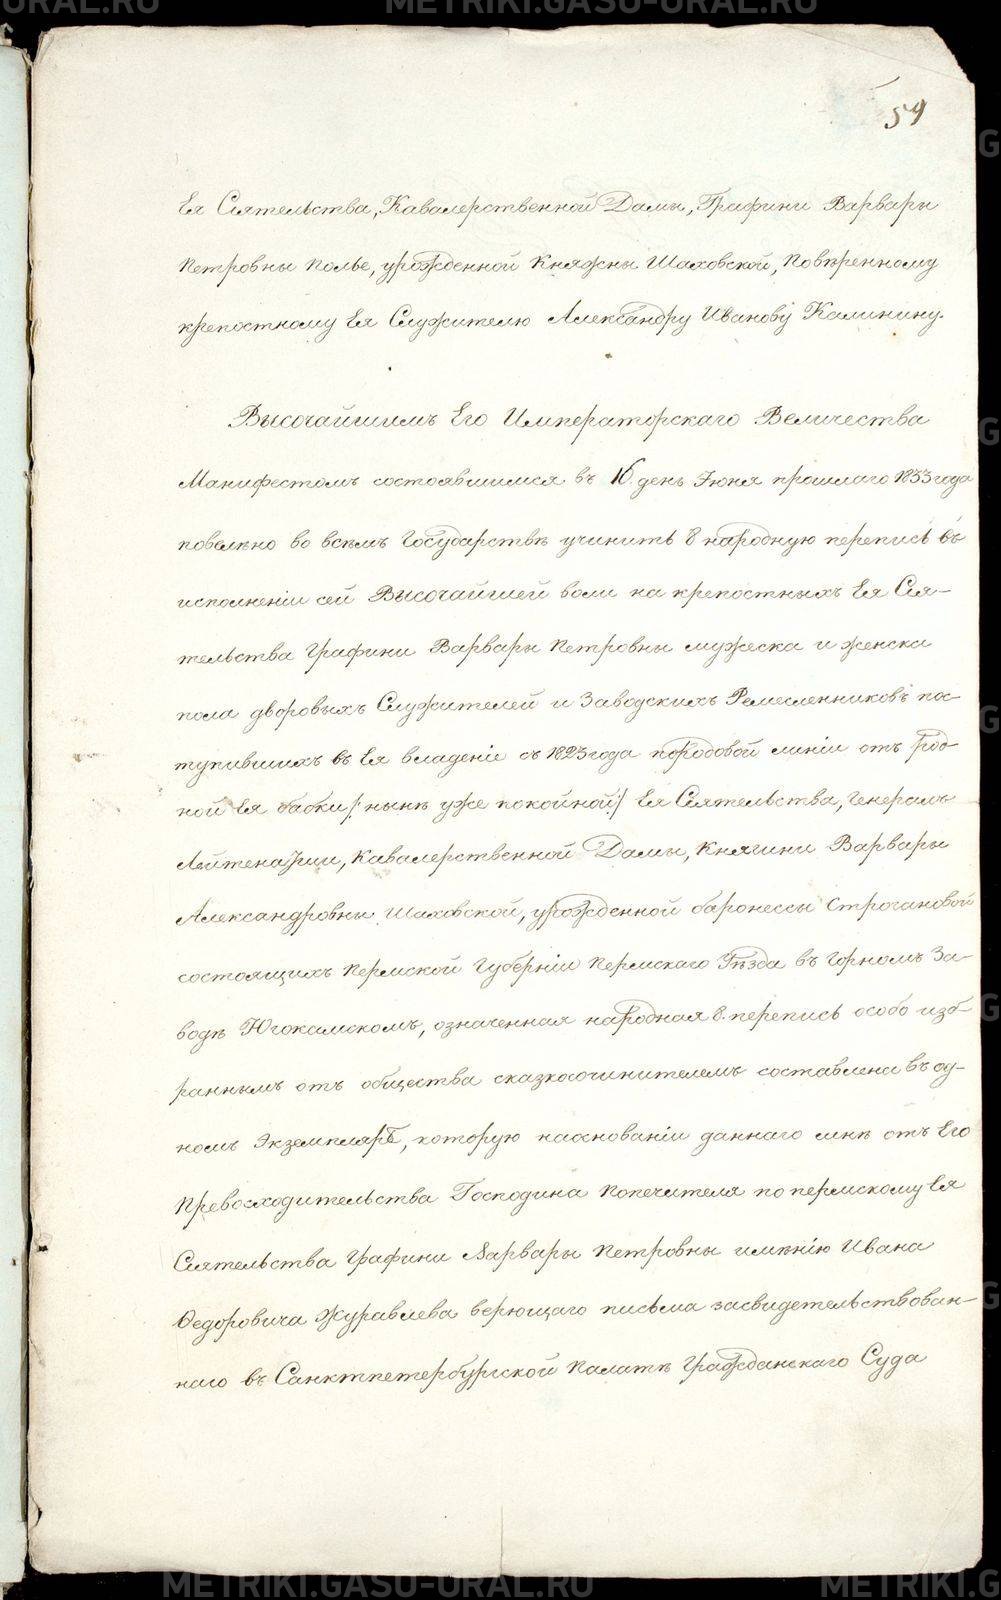 METRIKI.GASU-URAL.RU
59
Ея Сіятельства, Кавалерственной Дамы, Графини Варвары
Петровны Полье, урожденной Княжны Шаховской, Повѣренному
крепостному Ея Служителю Александру Иванову Калинину.
Высочайшимъ Его Императорскаго Величества
Манифестомъ состоявшимся въ 16 день Іюня прошлаго 1833 года
повелѣно во всѣмъ Государствѣ учинить 8 народную перепись въ
исполненіи сей Высочайшей воли на крепостныхъ Ея Сія-
тельства Графини Варвары Петровны мужеска и женска
пола дворовыхъ Служителей и Заводскихъ Ремесленниковъ пос-
тупившихъ въ Ея владеніе съ 1823 года породовой линіи отъ род-
ной Ея бабки /: нынѣ уже покойной :/ Ея Сіятельства, Генералъ
Лейтенанши, Кавалерственной Дамы, Княгини Варвары
Александровны Шаховской, урожденной баронессы Строгановой
состоящихъ Пермской Губерніи Пермскаго Уѣзда въ Горномъ За-
водѣ Югокамскомъ, означенная народная 8. перепись особо изб-
раннымъ отъ общества сказкосочинителемъ составлена въ од-
номъ Экземплярѣ, которую наоснованіи даннаго мнѣ отъ Его
Превосходительства Господина Попечителя по пермскому Ея
Сіятельства Графини Варвары Петровны имѣнію Ивана
Федоровича Журавлева верющаго письма засвидетельствован-
наго въ Санктпетербургской Палатѣ Гражданскаго Суда
METRIKI.GASU-URAL.RU